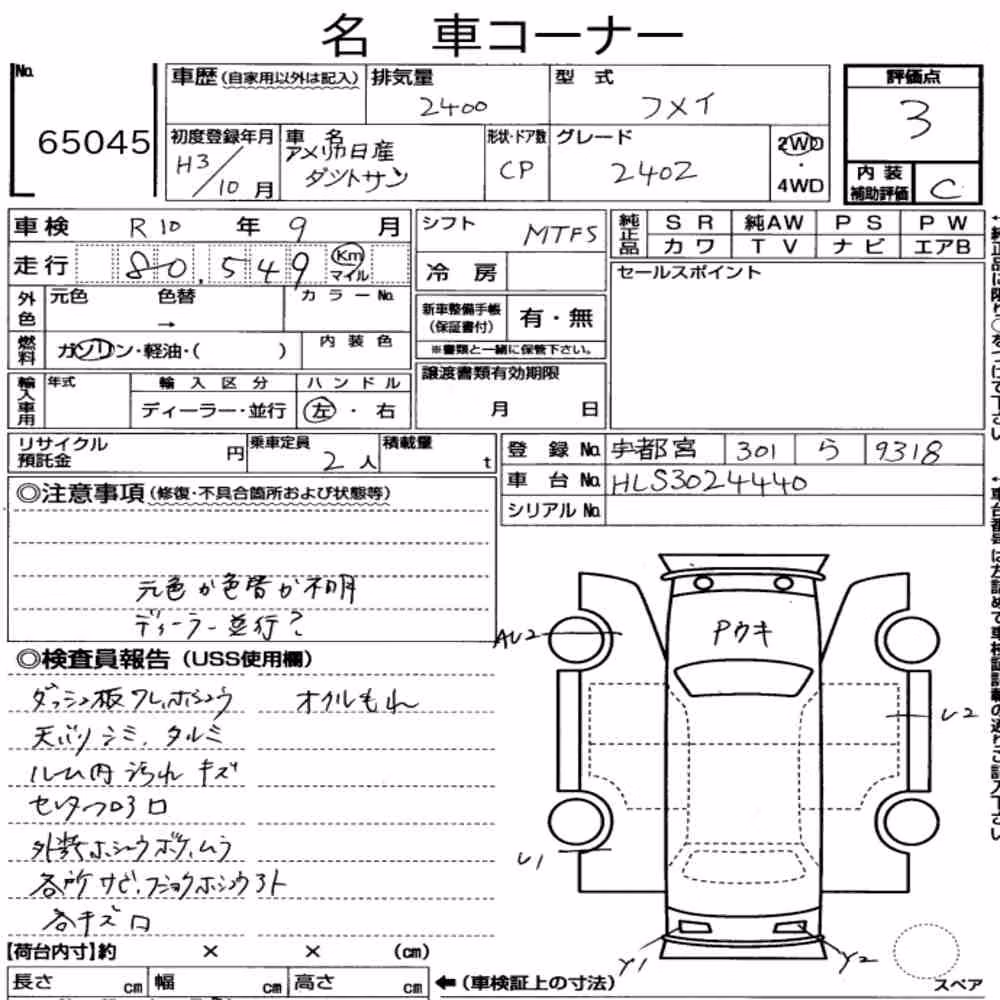 名 車コーナー
No. 65045
車歴 (自家用以外は記入)
排気量 2400
型式 フメイ
評価点 3
初度登録年月 H3/10月
車名 アメリカ日産 ダットサン
形状・ドア数 CP
グレード 240Z
2WD・4WD
内装補助評価 C
車検 R10年9月
シフト MTF5
純正品 SR 純AW PS PW
カワ TV ナビ エアB
走行 80,549 Km マイル
冷房
セールスポイント
外色 元色 色替 → カラーNo.
新車整備手帳(保証書付) 有・無
※書類と一緒に保管下さい。
燃料 ガソリン・軽油・( ) 内装色
輸入車用 年式 輸入区分 ハンドル
ディーラー・並行 左・右
譲渡書類有効期限
月 日
リサイクル預託金 円 乗車定員 2人 積載量 t
登録No. 宇都宮 301 ら 9318
車台No. HLS3024440
シリアルNo.
◎注意事項(修復・不具合箇所および状態等)
元色か色替か不明
ディーラー並行?
◎検査員報告(USS使用欄)
ダッシュ板ワレ,ホシュウ オイルもれ
天バリシミ、タルミ
ルーム内汚れ キズ
外装ホシュウボケ,ムラ
各所サビ,フショクホシュウアト
各キズ
Pウキ
AU2
U2
U1
Y1
Y2
スペア
【荷台内寸】約 × × (cm)
長さ cm 幅 cm 高さ cm
←(車検証上の寸法)